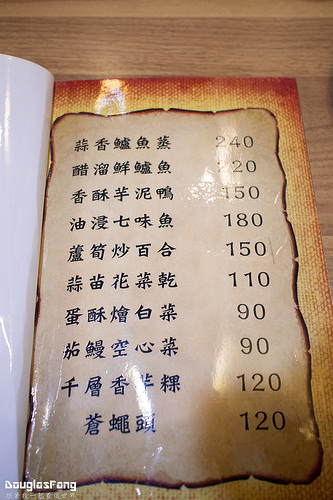 蒜香鱸魚蒸 240
醋溜鮮鱸魚 220
香酥芋泥鴨 150
油浸七味魚 180
蘆筍炒百合 150
蒜苗花菜乾 110
蛋酥燴白菜 90
茄鰻空心菜 90
千層香芋粿 120
蒼蠅頭 120
DouglasFang